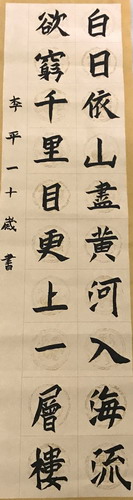 白日依山盡黃河入海流
欲窮千里目更上一層樓
李平一十歲書